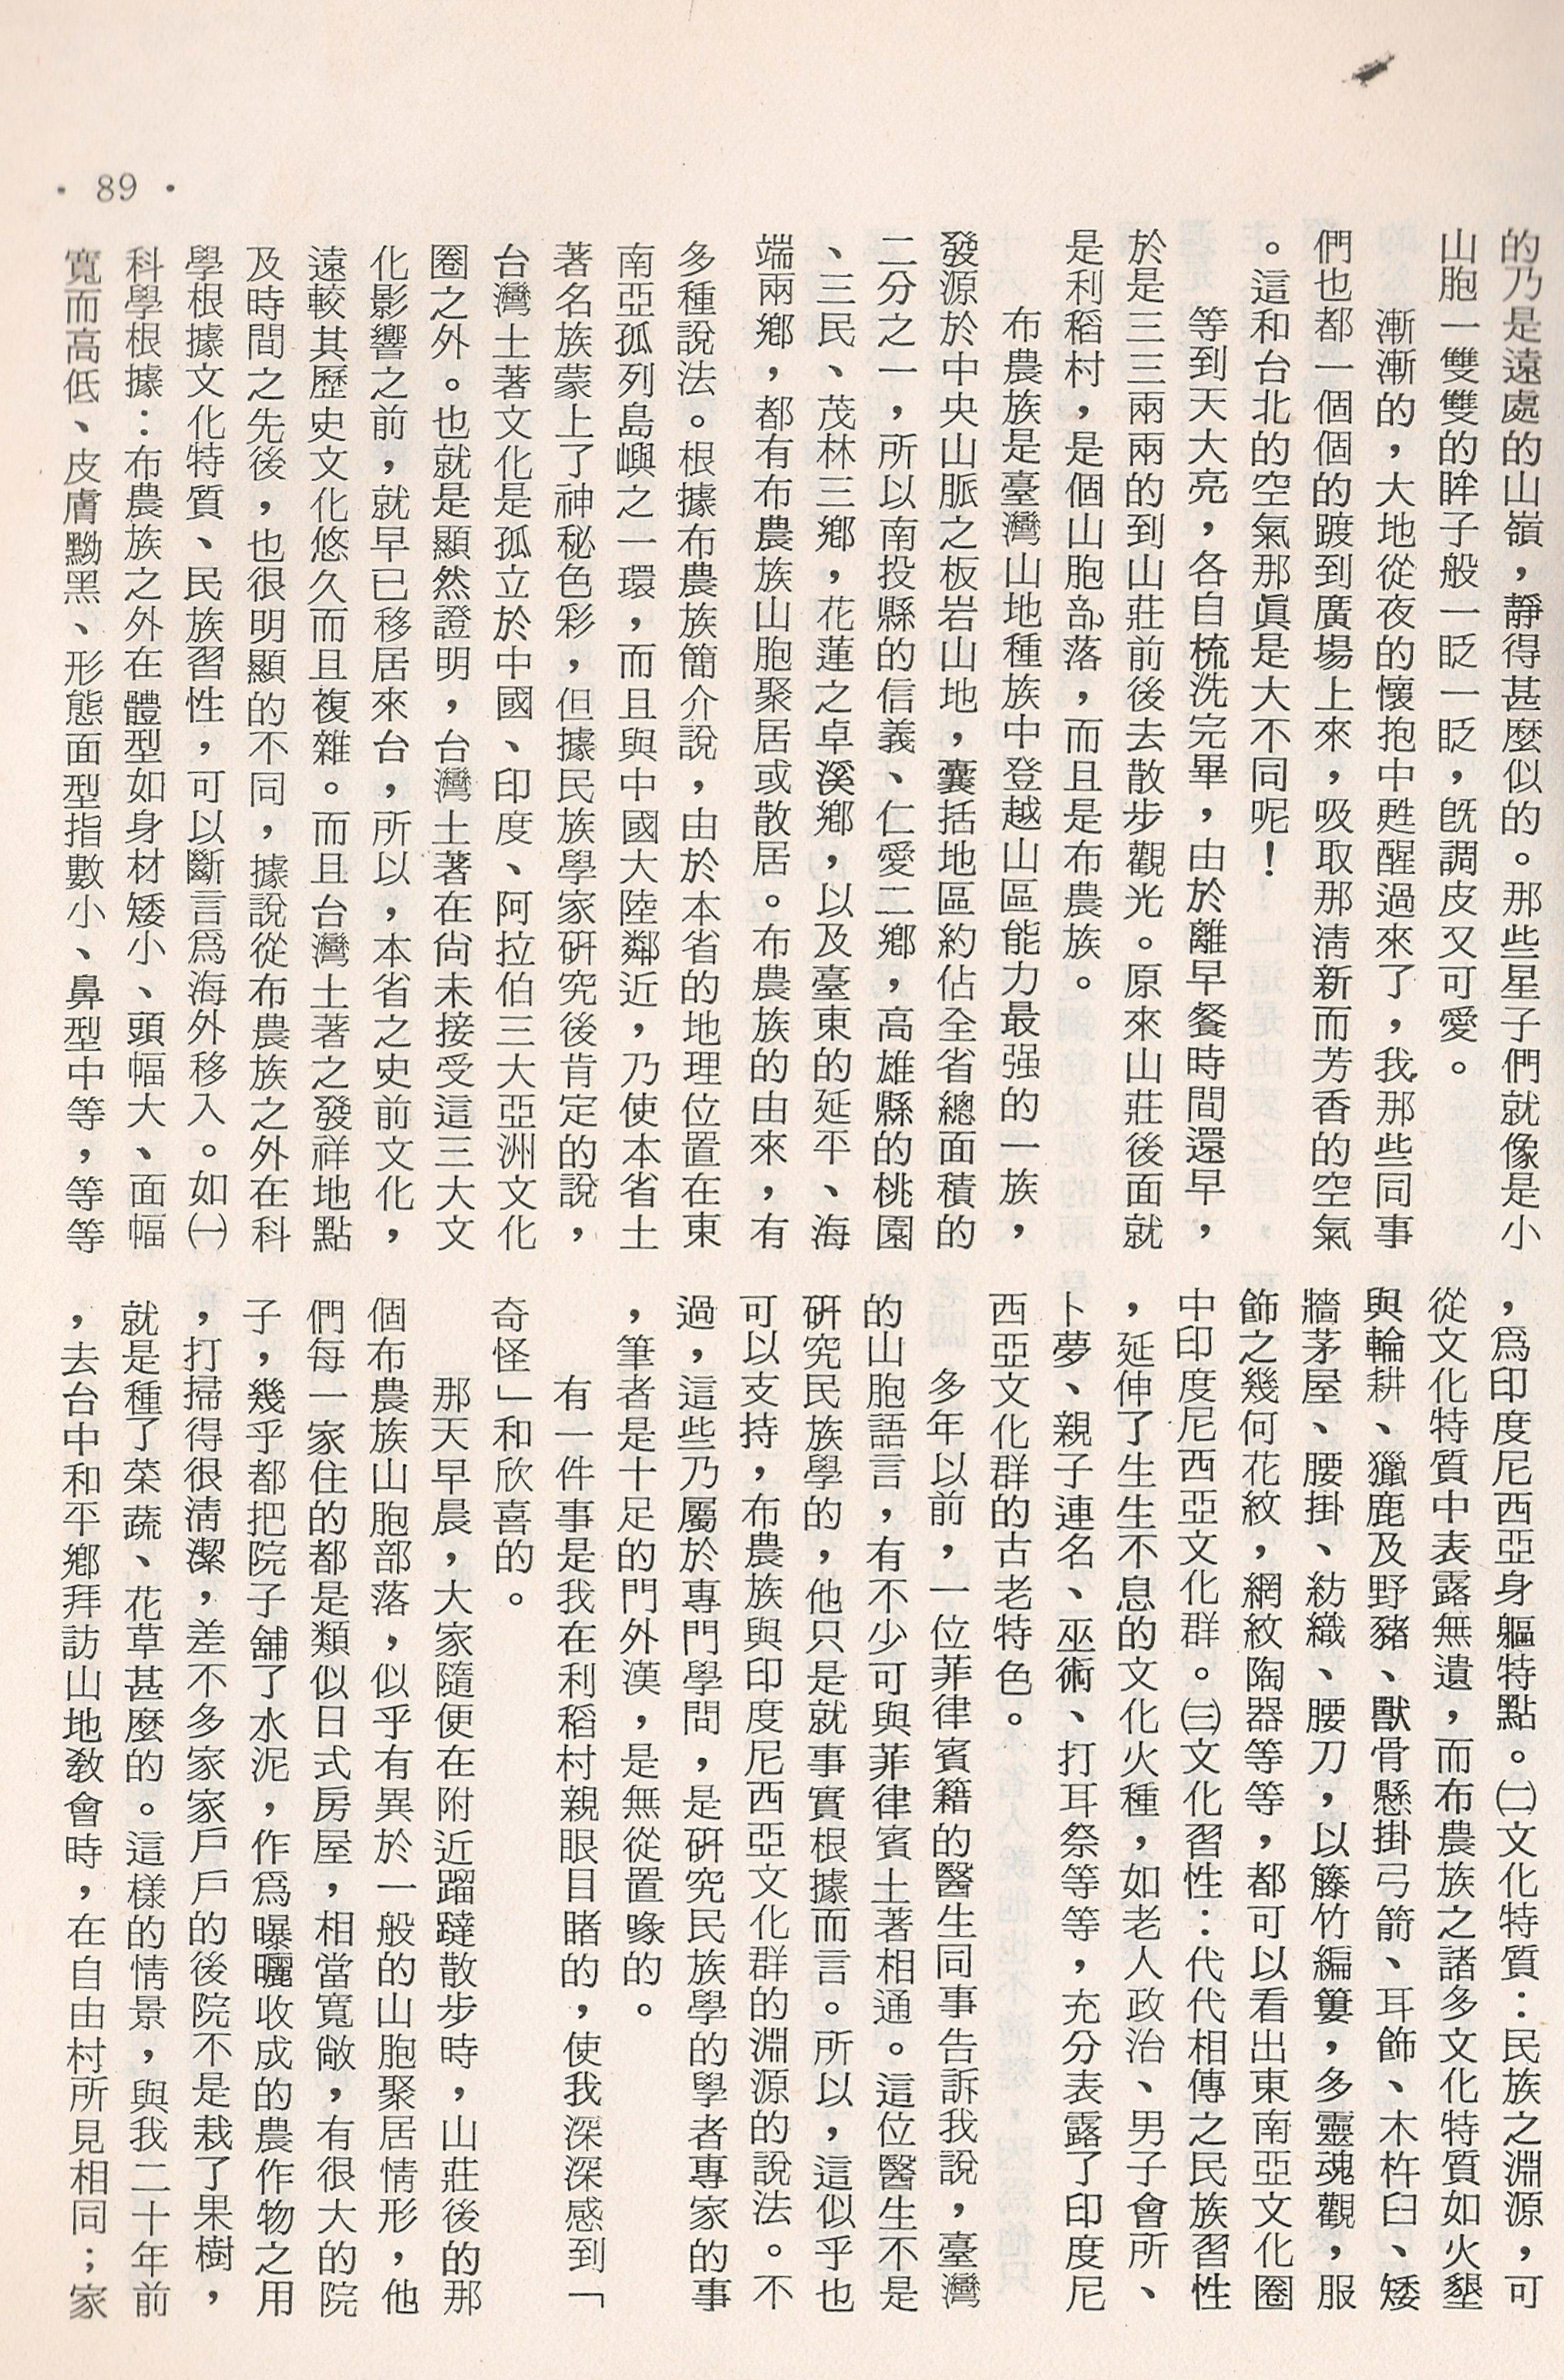 的乃是遠處的山嶺，靜得甚麼似的。那些星子們就像是小
山胞一雙雙的眸子般一眨一眨，旣調皮又可愛。
漸漸的，大地從夜的懷抱中甦醒過來了，我那些同事
們也都一個個的踱到廣場上來，吸取那淸新而芳香的空氣
。這和台北的空氣那眞是大不同呢！
等到天大亮，各自梳洗完畢，由於離早餐時間還早，
於是三三兩兩的到山莊前後去散步觀光。原來山莊後面就
是利稻村，是個山胞部落，而且是布農族。
布農族是臺灣山地種族中登越山區能力最强的一族，
發源於中央山脈之板岩山地，囊括地區約佔全省總面積的
二分之一，所以南投縣的信義、仁愛二鄉，高雄縣的桃園
、三民、茂林三鄉，花蓮之卓溪鄉，以及臺東的延平、海
端兩鄉，都有布農族山胞聚居或散居。布農族的由來，有
多種說法。根據布農族簡介說，由於本省的地理位置在東
南亞孤列島嶼之一環，而且與中國大陸鄰近，乃使本省土
著名族蒙上了神秘色彩，但據民族學家硏究後肯定的說，
台灣土著文化是孤立於中國、印度、阿拉伯三大亞洲文化
圈之外。也就是顯然證明，台灣土著在尙未接受這三大文
化影響之前，就早已移居來台，所以，本省之史前文化，
遠較其歷史文化悠久而且複雜。而且台灣土著之發祥地點
及時間之先後，也很明顯的不同，據說從布農族之外在科
學根據文化特質、民族習性，可以斷言爲海外移入。如㈠
科學根據：布農族之外在體型如身材矮小、頭幅大、面幅
寬而高低、皮膚黝黑、形態面型指數小、鼻型中等，等等
，爲印度尼西亞身軀特點。㈡文化特質：民族之淵源，可
從文化特質中表露無遺，而布農族之諸多文化特質如火墾
與輪耕、獵鹿及野豬、獸骨懸掛弓箭、耳飾、木杵臼、矮
牆茅屋、腰掛、紡織、腰刀，以籐竹編簍，多靈魂觀，服
飾之幾何花紋，網紋陶器等等，都可以看出東南亞文化圈
中印度尼西亞文化群。㈢文化習性：代代相傳之民族習性
，延伸了生生不息的文化火種，如老人政治、男子會所、
卜夢、親子連名、巫術、打耳祭等等，充分表露了印度尼
西亞文化群的古老特色。
多年以前，一位菲律賓籍的醫生同事告訴我說，臺灣
的山胞語言，有不少可與菲律賓土著相通。這位醫生不是
硏究民族學的，他只是就事實根據而言。所以，這似乎也
可以支持，布農族與印度尼西亞文化群的淵源的說法。不
過，這些乃屬於專門學問，是硏究民族學的學者專家的事
，筆者是十足的門外漢，是無從置喙的。
有一件事是我在利稻村親眼目睹的，使我深深感到「
奇怪」和欣喜的。
那天早晨，大家隨便在附近蹓躂散步時，山莊後的那
個布農族山胞部落，似乎有異於一般的山胞聚居情形，他
們每一家住的都是類似日式房屋，相當寬敞，有很大的院
子，幾乎都把院子舖了水泥，作爲曝曬收成的農作物之用
，打掃得很淸潔，差不多家家戶戶的後院不是栽了果樹，
就是種了菜蔬、花草甚麼的。這樣的情景，與我二十年前
，去台中和平鄉拜訪山地敎會時，在自由村所見相同；家
• 89 •